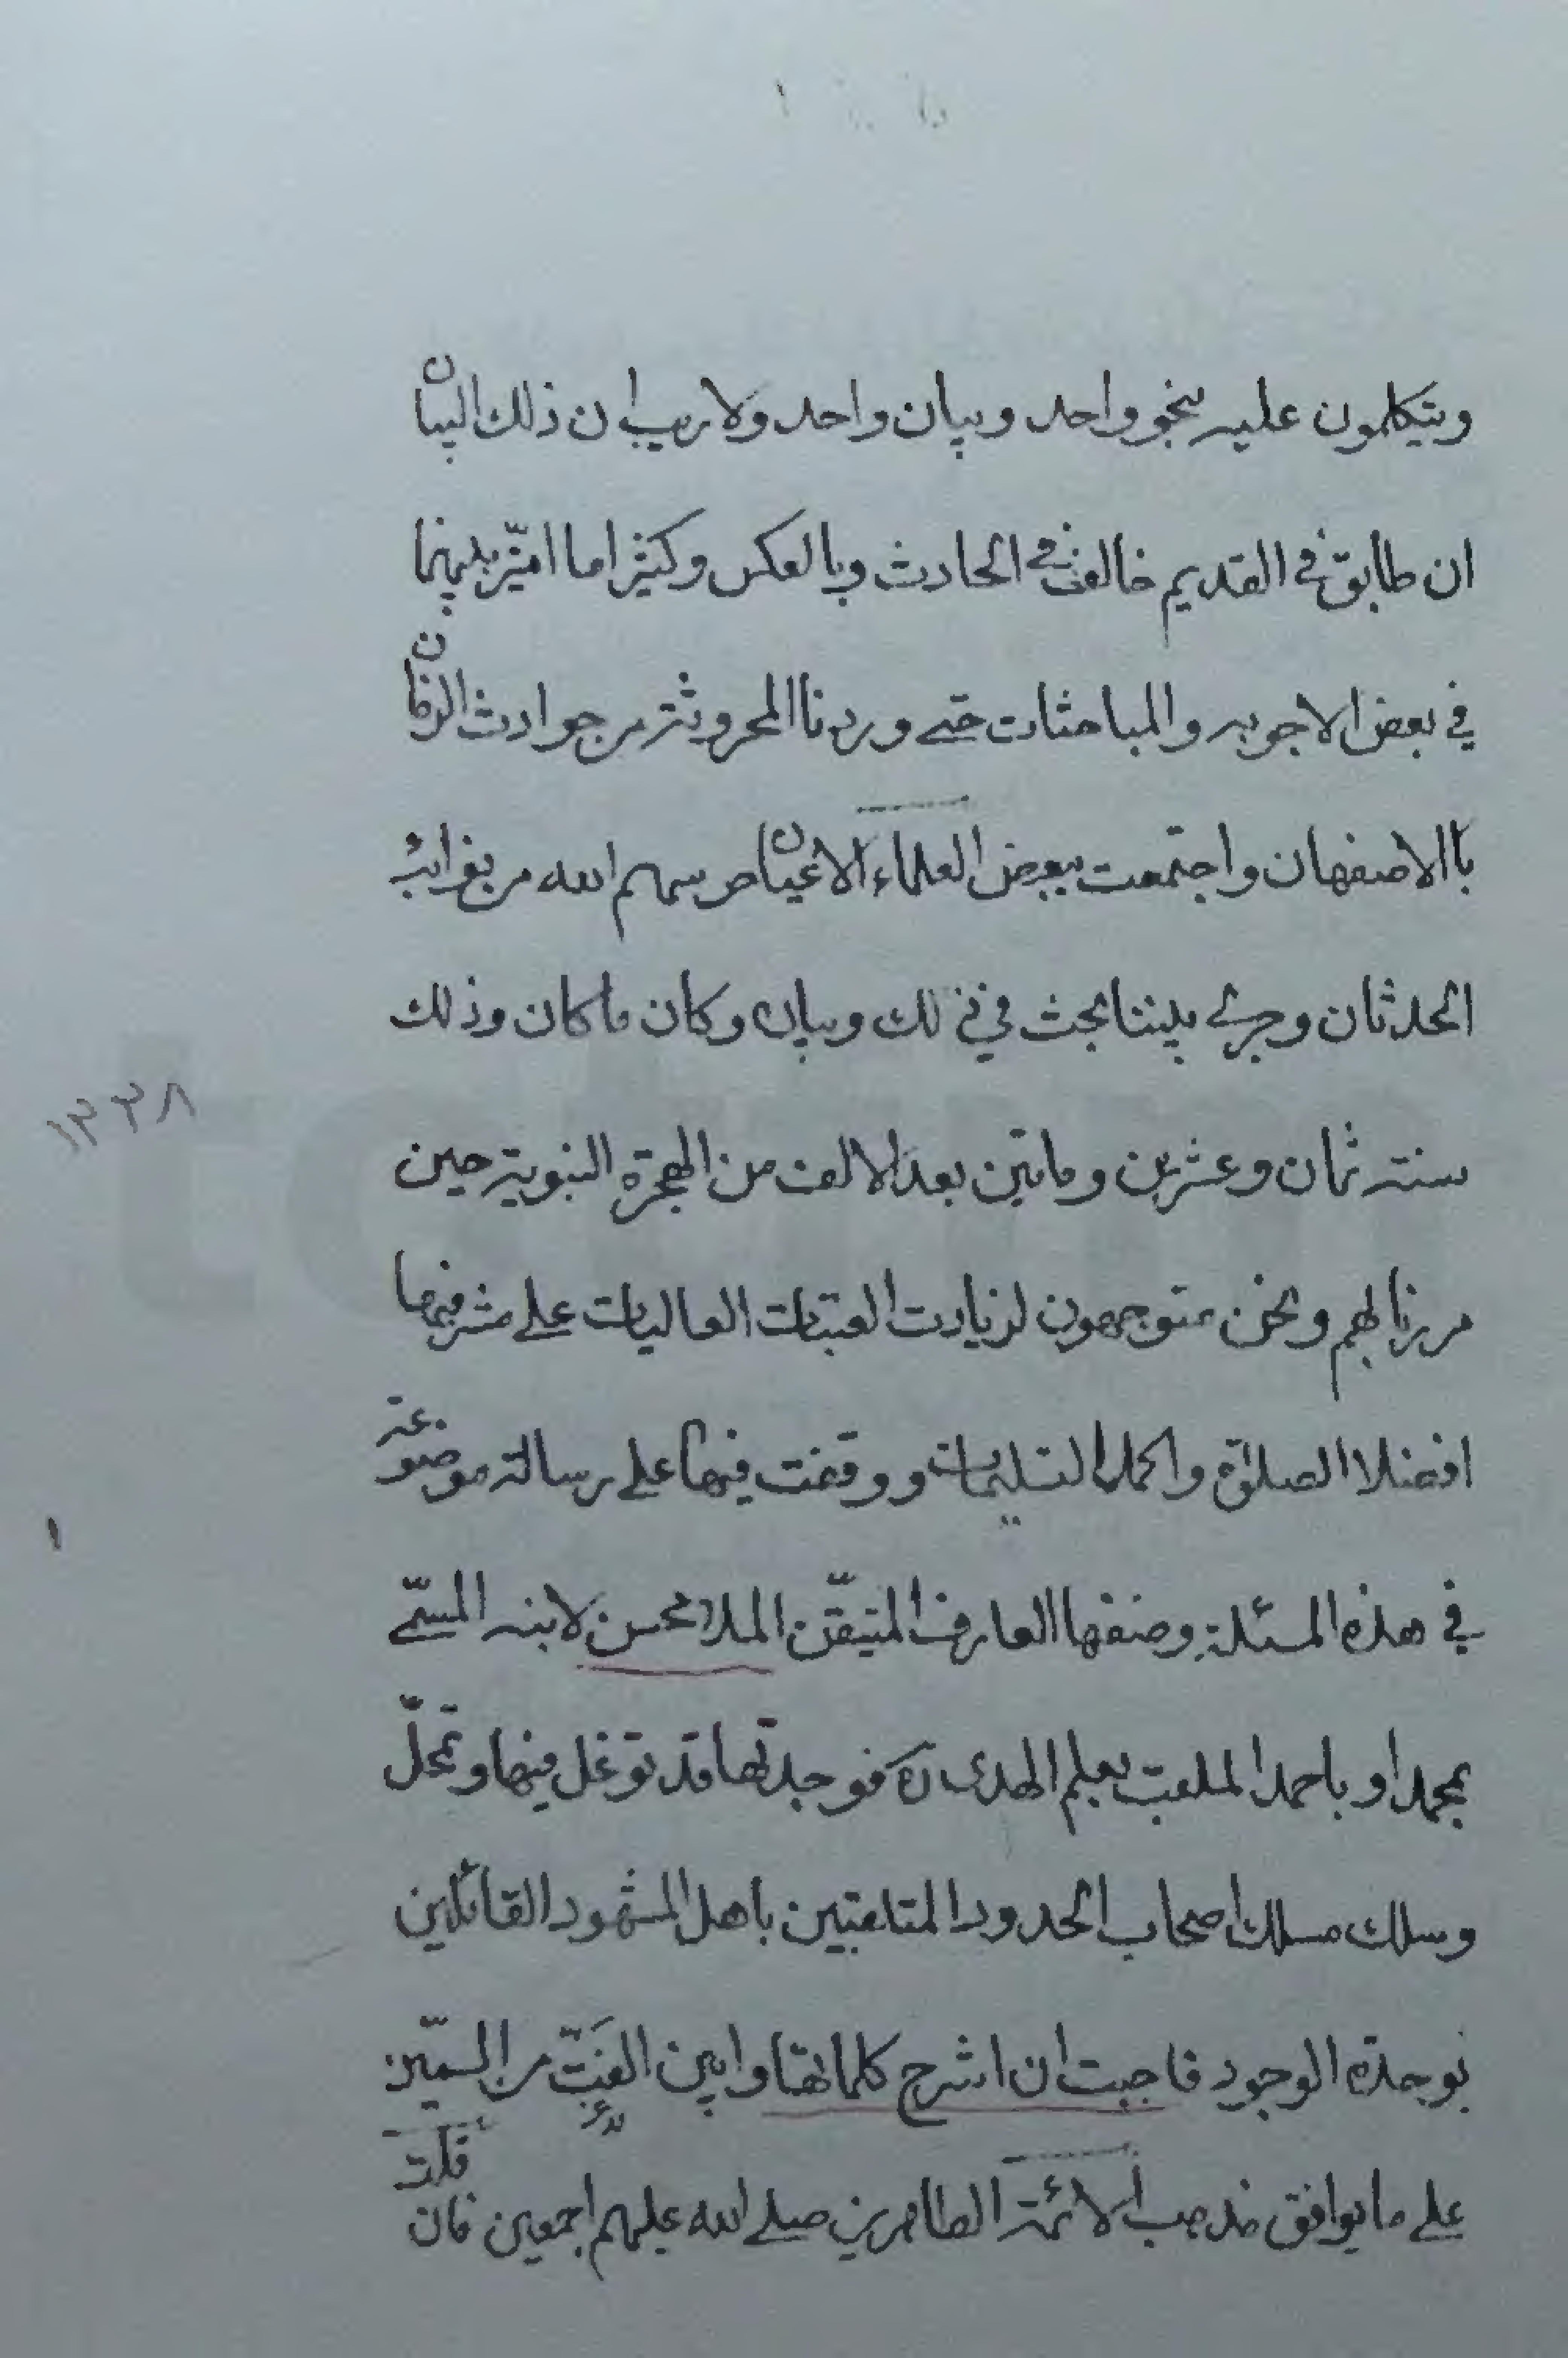 ويتكلمون عليه بنحو واحد وببيان واحد ولا ريب ان ذلك البيان
ان طابق في القديم خالف في الحادث وبالعكس وكثيرا ما اميّز بينهما
في بعض الاجوبه والمباحثات حتى وردنا المحروسة من حوادث الزمان
باالاصفهان واجتمعت ببعض العلماء الاعيان حرسهم الله من نوائب
الحدثان وجرى بيننا بحث في ذلك وبيان وكان ما كان وذلك
سنة ثمان وعشرين وماتين بعد الالف من الهجرة النبوية حين
مررنا لهم ونحن متوجهون لزيارت العتبات العاليات على مشرفيها
١٢٢٨
افضل الصلوة واكمل التسليمات ووقفت فيها على رسالة موضوعة
في هذه المسئلة وصنفها العارف المتيقّن الملا محسن لابنه المسمّى
١
بمحمد او باحمد الملقب بعلم الهدى ره فوجدتها قد توغل فيها وتمحّل
وسلك مسلك اصحاب الحدود المتلقبين باهل الشهود القائلين
بوحدة الوجود فاحببت ان اشرح كلماتها وابين الغثّ من السمين
على ما يوافق مذهب الائمة الطاهرين صلى الله عليهم اجمعين فان
قلت